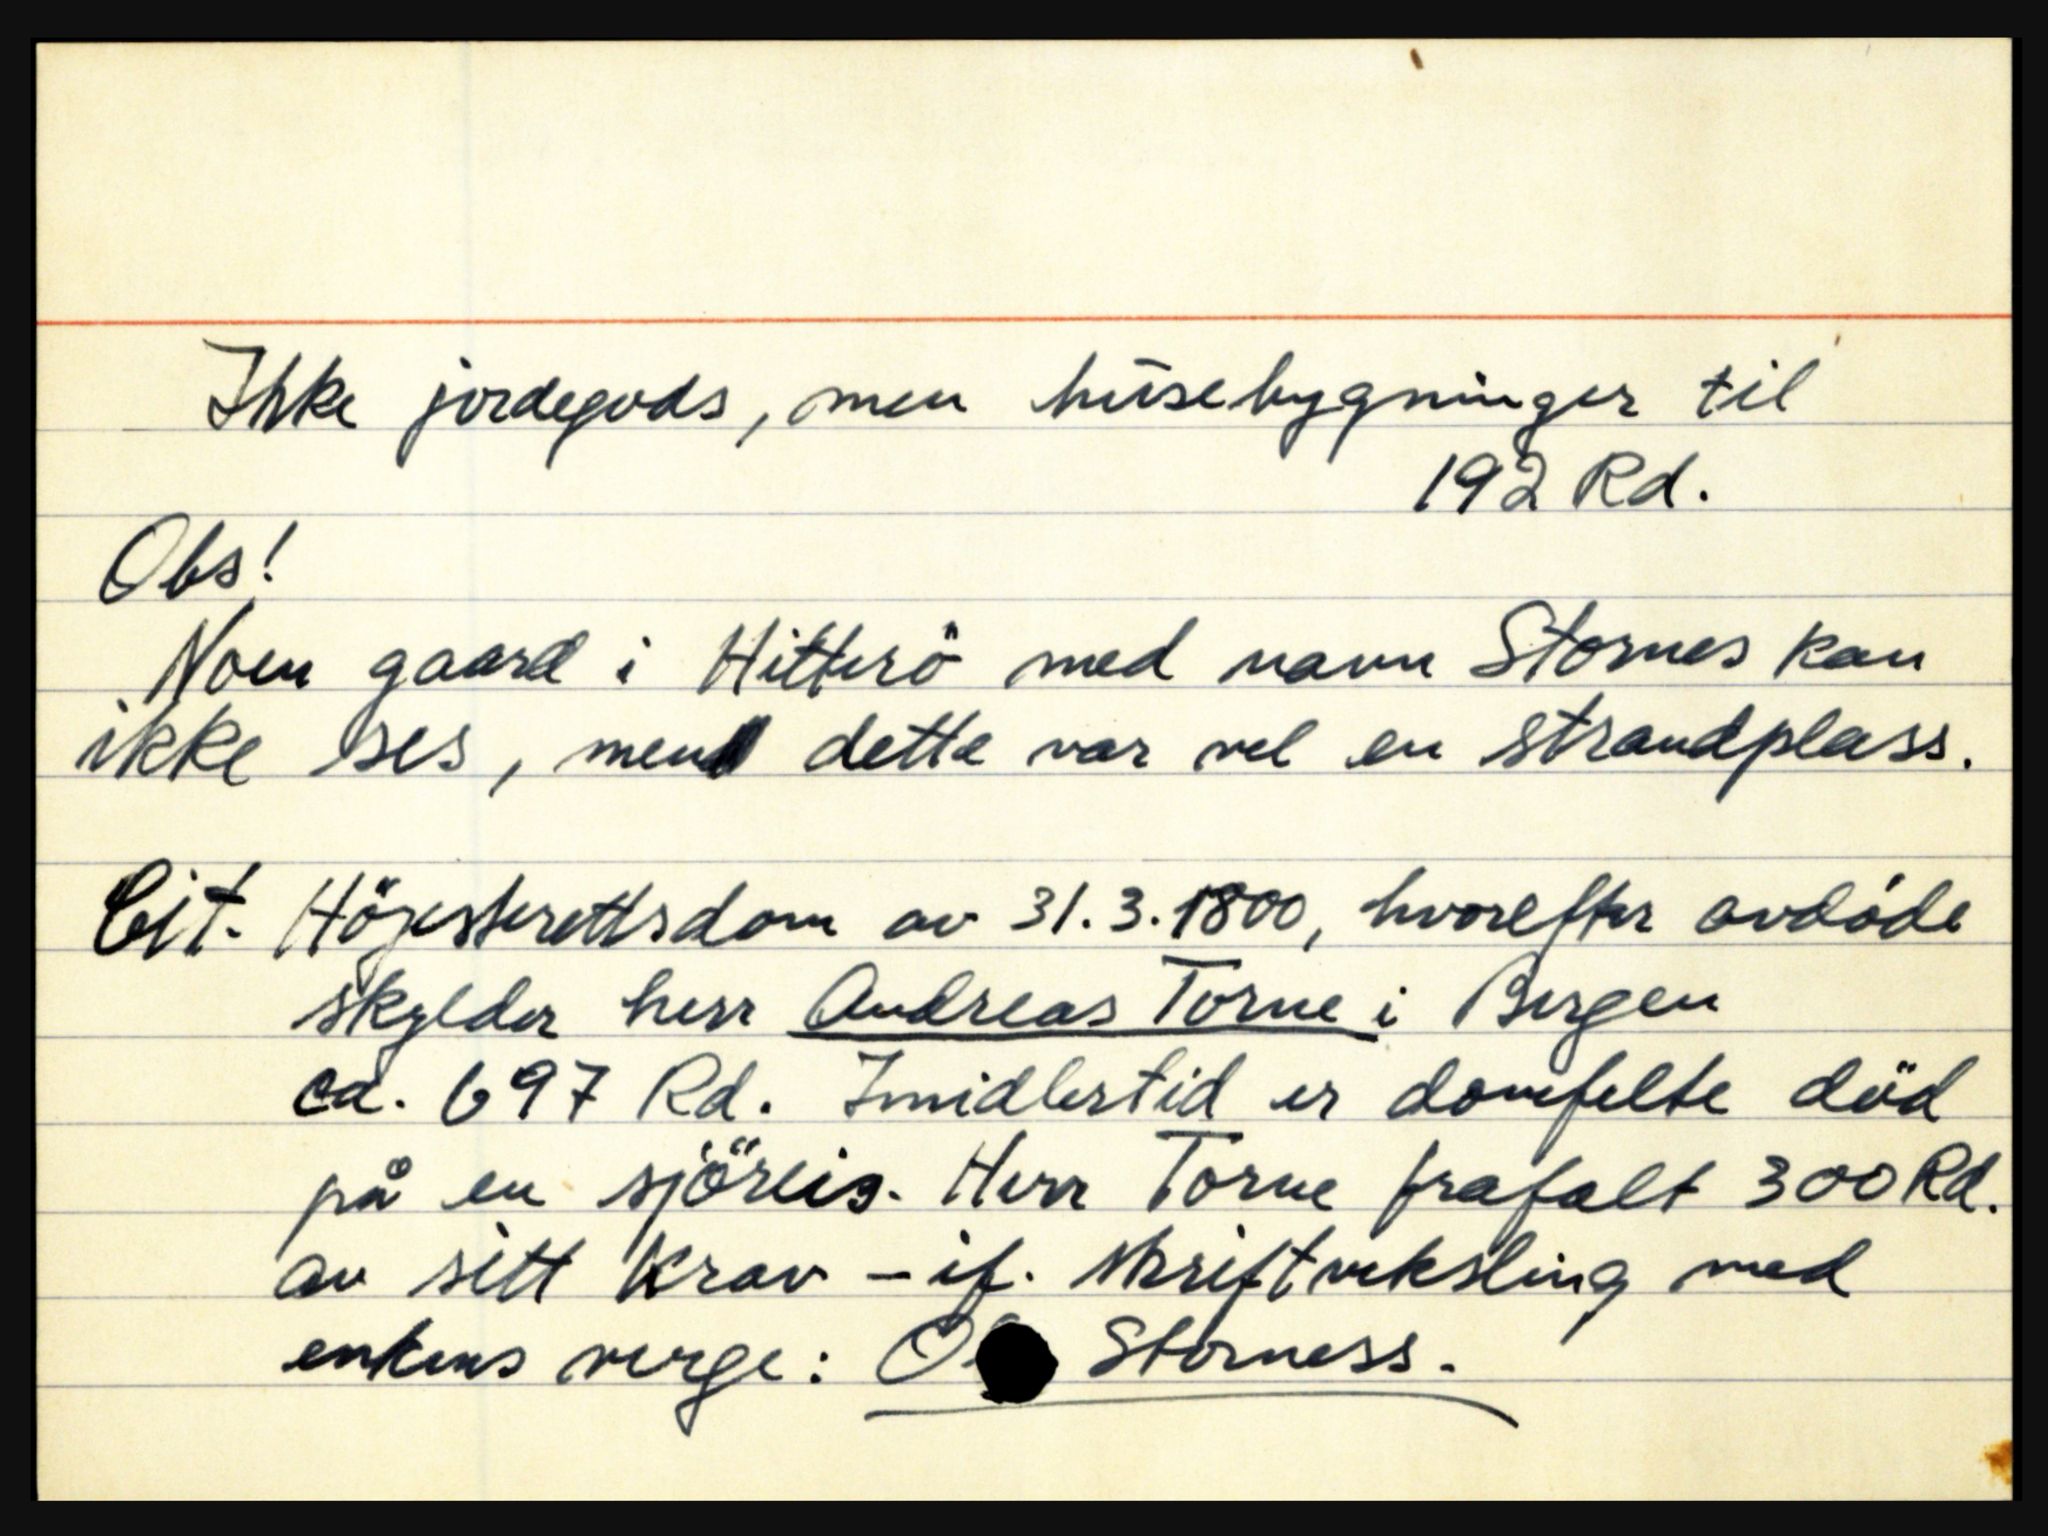 Ikke jordegods, men husebygninger til
192 Rd.
Obs!
Noen gaard i Hitterö med navn Stornes kan
ikke ses, men dette var vel en strandplass.
Cit. Höjesterettsdom av 31.3.1800, hvorefter avdöde
skylder herr Andreas Torne i Bergen
ca. 697 Rd. Imidlertid er domfelte död
på en sjöreis. Herr Torne frafalt 300 Rd.
av sitt krav - if. skriftveksling med
enkens verge: Storness.